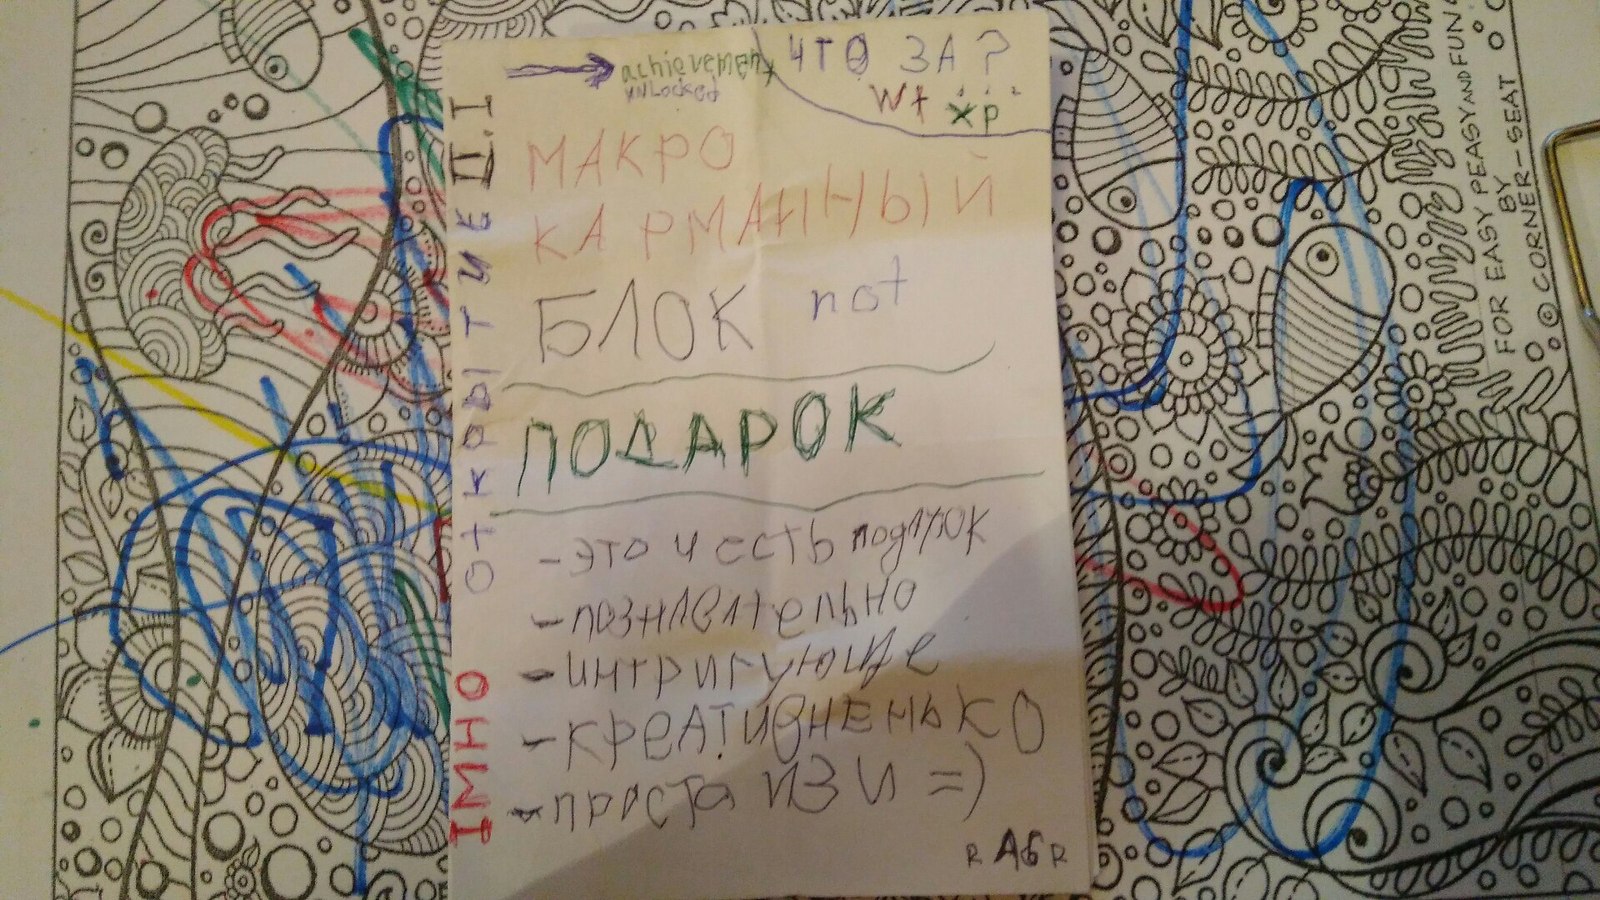 achievement
unlocked
ЧТО ЗА ?
Wt xp
МАКРО
КАРМАННЫЙ
БЛОК not
ПОДАРОК
-это и есть подарок
-познавательно
-интригующе
-креативненько
-проста ИЗИ =)
R АБ R
ОТКРЫТИЕ П.I
IМНО
FOR EASY PEASY AND FUN
BY
© CORNER-SEAT